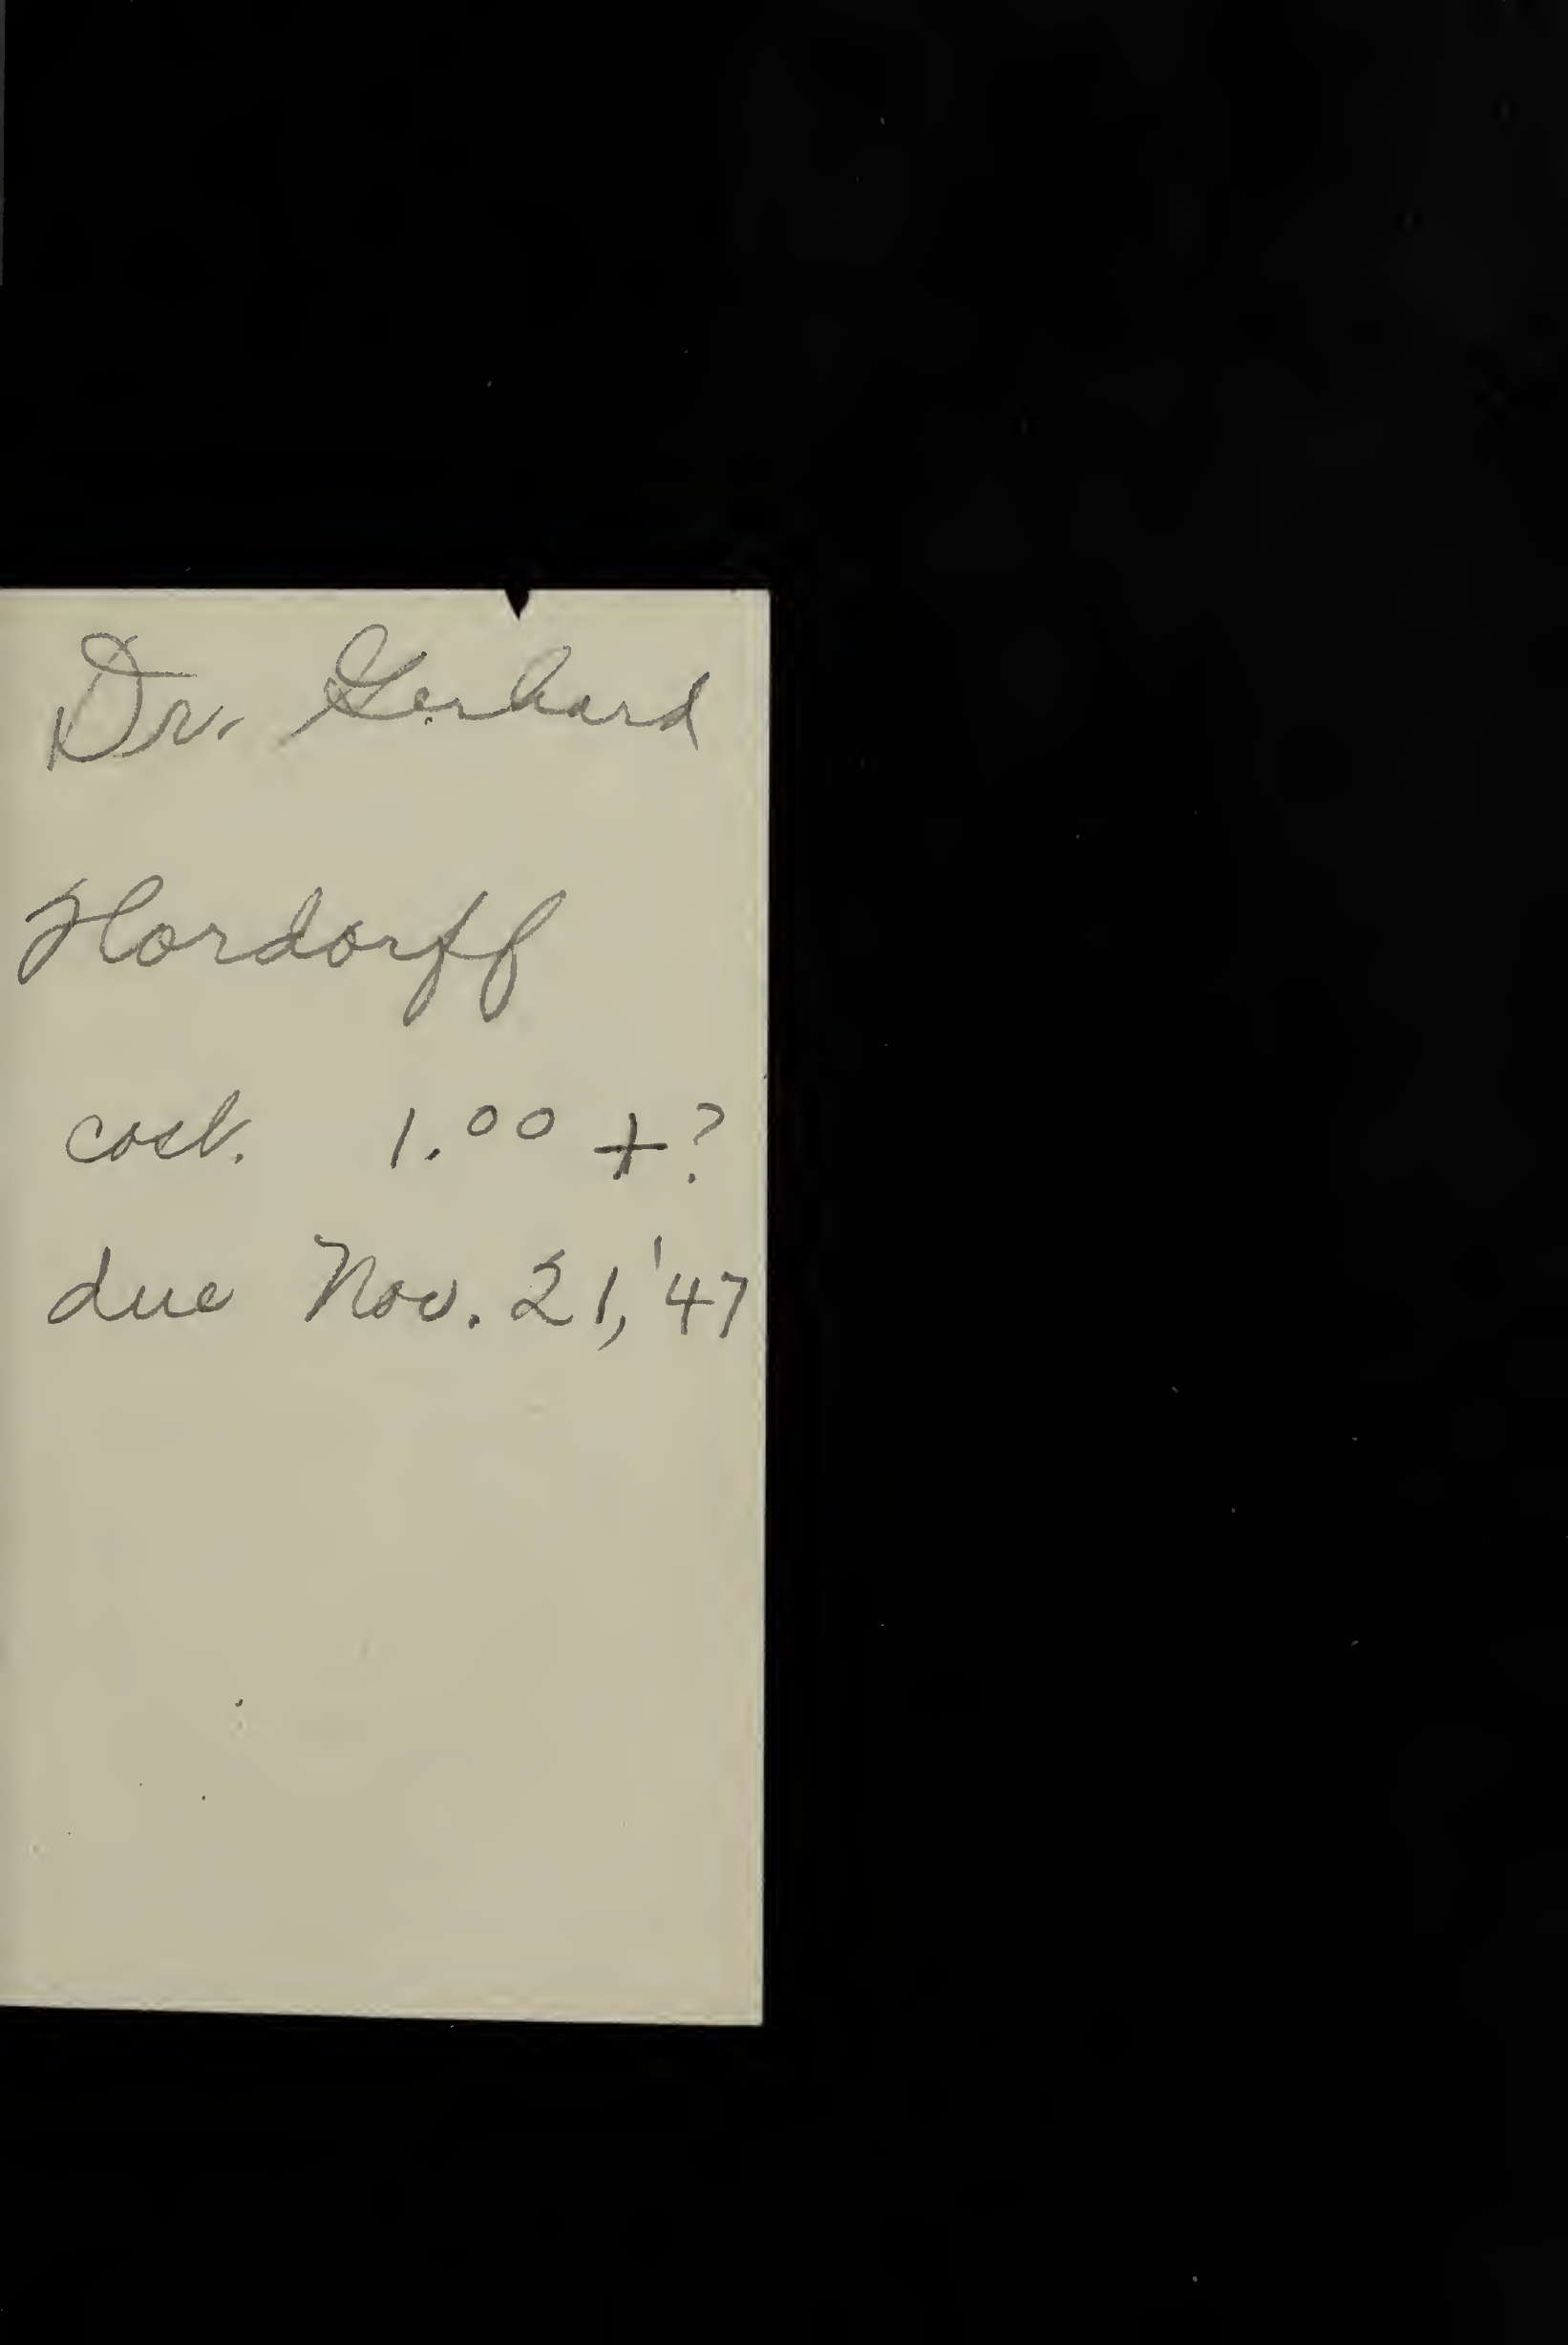 Dr. Gerhard
Hordorff
cost. 1.00 +?
due Nov. 21, '47